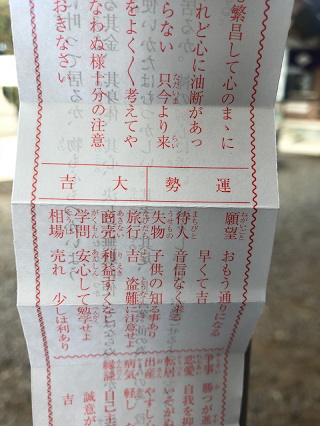 繁昌して心のまゝに
れど心に油断があっ
らない 只今より来
をよく〳〵考えてや
なわぬ様十分の注意
おきなさい
運勢 大吉
願望 おもう通りになる
早くて吉
待人 音信なく来る
失物 子供の知る事あり
旅行 吉 盗難に注意せよ
商売 利益すくなし
学問 安心して勉学せよ
相場 売れ 少しは利あり
争事 勝つが
恋愛 自我を抑
転居 いそがぬ
出産 やすし
病気 軽し
縁談 自己主
誠意が
吉